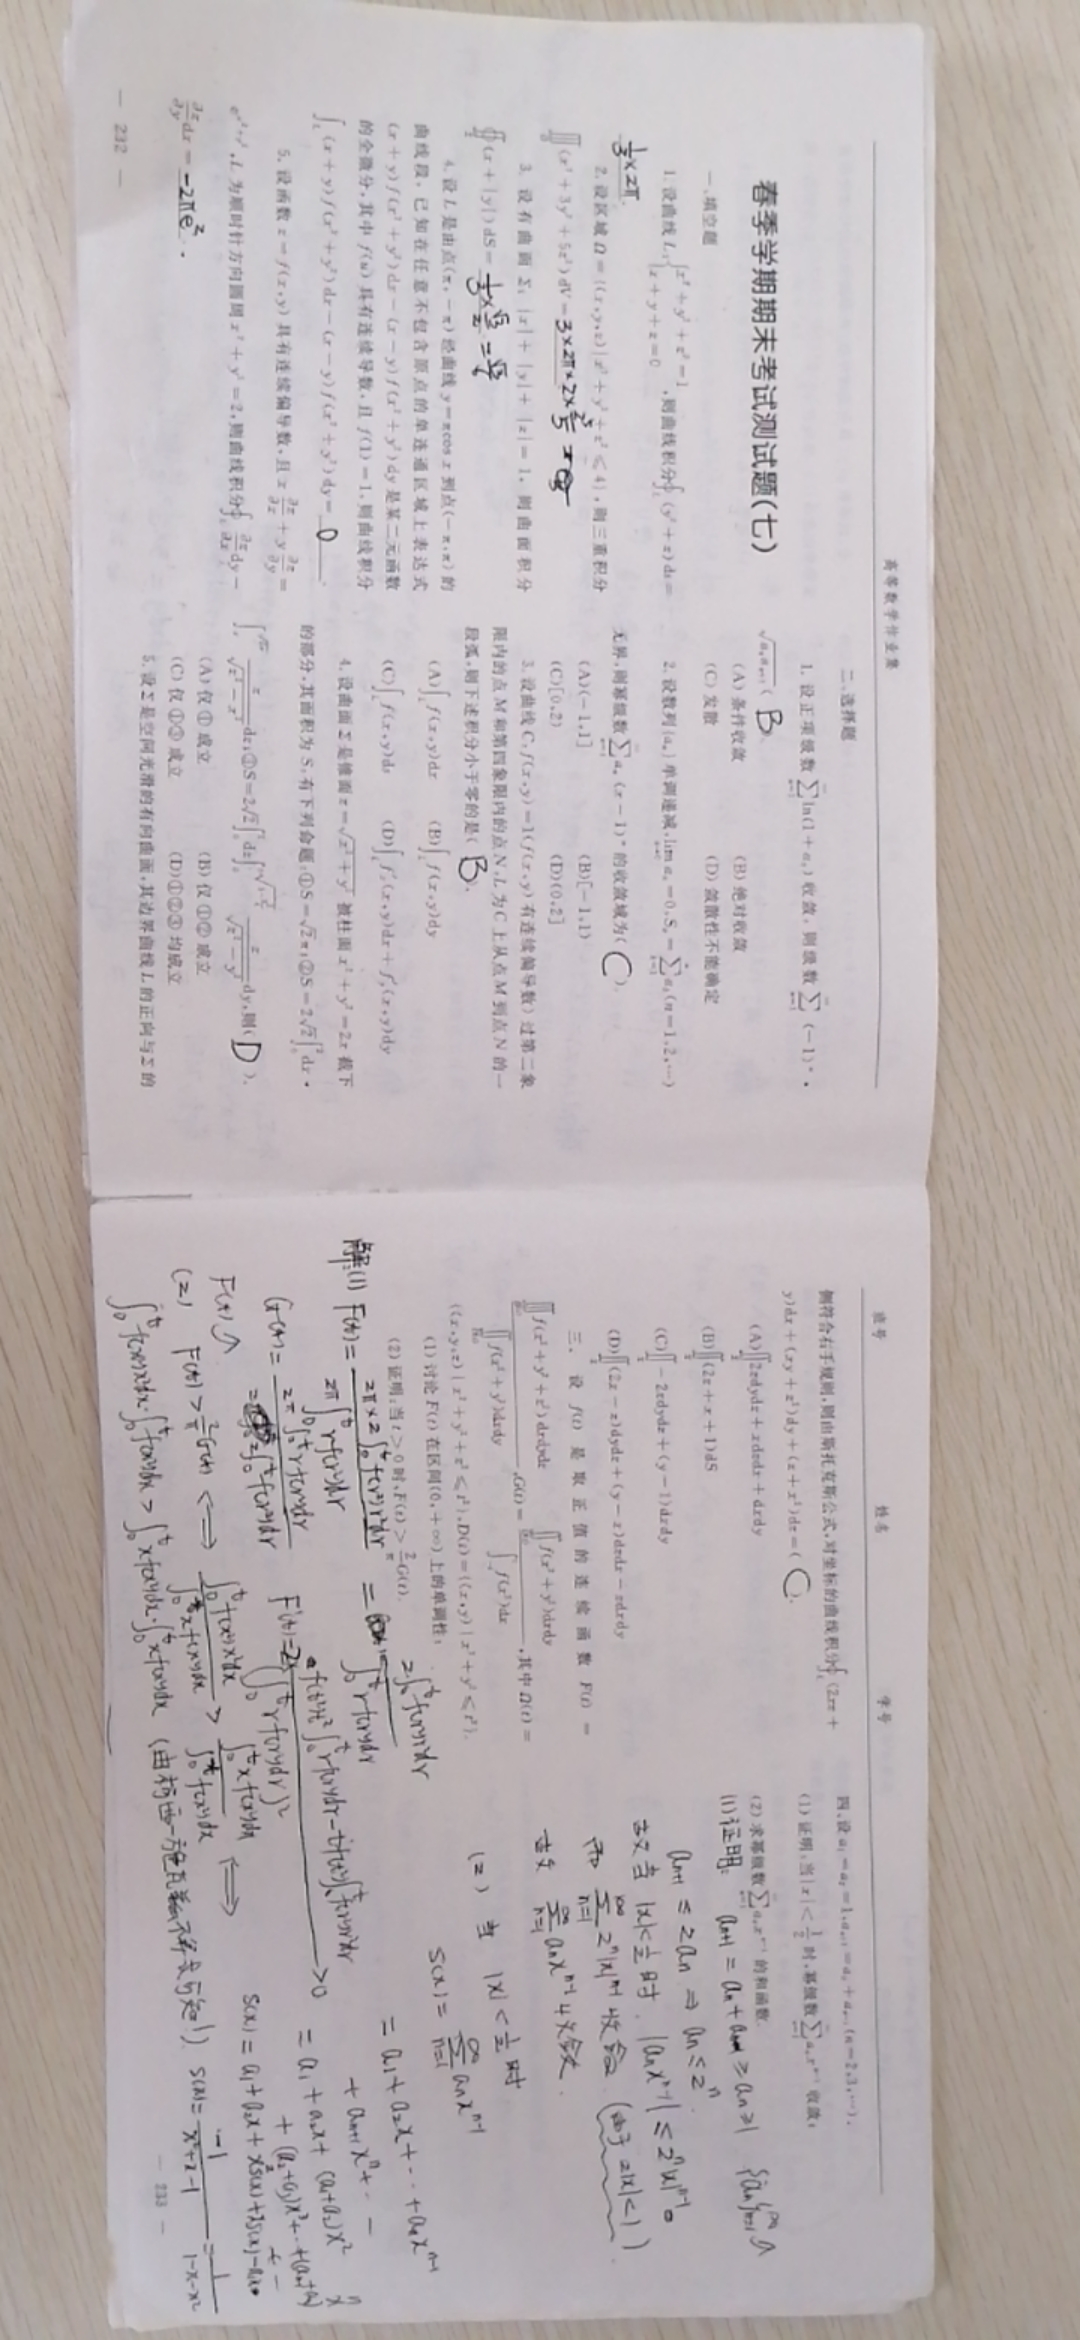 高等数学作业集
春季学期期末考试测试题(七)
一、填空题
1. 设曲线 L:{x²+y²+z²=1
x+y+z=0 ,则曲线积分∮_L (y²+z)ds=
1/3×2π.
2. 设区域 Ω={(x,y,z)|x²+y²+z²≤4},则三重积分
∭_Ω (x²+3y²+5z²)dV=3×2π×2×2⁵/5
3. 设有曲面 Σ:|x|+|y|+|z|=1, 则曲面积分
∯_Σ (x+|y|)dS= 1/3×√3/2=√3/6
4. 设 L 是由点(π,-π)经曲线 y=πcos x 到点(-π,π)的
曲线段, 已知在任意不包含原点的单连通区域上表达式
(x+y)f(x²+y²)dx-(x-y)f(x²+y²)dy 是某二元函数
的全微分,其中 f(u) 具有连续导数,且 f(1)=1,则曲线积分
∫_L (x+y)f(x²+y²)dx-(x-y)f(x²+y²)dy= 0 .
5. 设函数 z=f(x,y) 具有连续偏导数,且 x ∂z/∂x + y ∂z/∂y =
e^{x²+y²},L 为顺时针方向圆周 x²+y²=2,则曲线积分∮_L ∂z/∂x dy-
∂z/∂y dx= -2πe² .
— 232 —
二、选择题
1. 设正项级数 ∑_{n=1}^∞ ln(1+aₙ) 收敛, 则级数 ∑_{n=1}^∞ (-1)ⁿ·
√(aₙaₙ₊₁) ( B ).
(A) 条件收敛 (B) 绝对收敛
(C) 发散 (D) 敛散性不能确定
2. 设数列{aₙ}单调递减,lim_{n→∞} aₙ=0,Sₙ=∑_{k=1}^n aₖ(n=1,2,⋯)
无界,则幂级数 ∑_{n=1}^∞ aₙ(x-1)ⁿ 的收敛域为( C ).
(A)(-1,1] (B)[-1,1)
(C)[0,2) (D)(0,2]
3. 设曲线 C:f(x,y)=1(f(x,y) 有连续偏导数) 过第二象
限内的点 M 和第四象限内的点 N,L 为 C 上从点 M 到点 N 的一
段弧,则下述积分小于零的是( B ).
(A)∫_L f(x,y)dx (B)∫_L f(x,y)dy
(C)∫_L f(x,y)ds (D)∫_L f′ₓ(x,y)dx+f′ᵧ(x,y)dy
4. 设曲面 Σ 是锥面 z=√(x²+y²) 被柱面 x²+y²=2x 截下
的部分,其面积为 S,有下列命题:①S=√2π;②S=2√2∫₀² dx·
dz;③S=2√2∫₀² dz∫ z/√(z²-y²) dy,则( D ).
(A) 仅①成立 (B) 仅①②成立
(C) 仅①③成立 (D)①②③均成立
5. 设Σ是空间光滑的有向曲面,其边界曲线L的正向与Σ的
班号 姓名 学号
侧符合右手规则,则由斯托克斯公式,对坐标的曲线积分∮_L (2xz+
y)dx+(xy+z²)dy+(z+x²)dz=( C ).
(A)∬_Σ 2zdydz+xdzdx+dxdy
(B)∬_Σ (2z+x+1)dS
(C)∬_Σ -2zdydz+(y-1)dxdy
(D)∬_Σ (2x-z)dydz+(y-z)dzdx-zdxdy
三、 设 f(t) 是取正值的连续函数 F(t) =
∭_Ω(t) f(x²+y²+z²)dxdydz / ∬_D(t) f(x²+y²)dxdy ,G(t)= ∬_D(t) f(x²+y²)dxdy / ∫_{-t}^t f(x²)dx ,其中 Ω(t)=
{(x,y,z)|x²+y²+z²≤t²},D(t)={(x,y)|x²+y²≤t²}.
(1) 讨论 F(t) 在区间(0,+∞)上的单调性;
(2) 证明:当 t>0 时,F(t)>2/π G(t).
解:(1) F(t)= 2π×2∫₀ᵗ f(r²)r²dr / 2π∫₀ᵗ rf(r²)dr = 2∫₀ᵗ f(r²)r²dr / ∫₀ᵗ rf(r²)dr
G(t)= 2π∫₀ᵗ rf(r²)dr / 2∫₀ᵗ f(r²)dr F′(t)=2× f(t²)t²∫₀ᵗ rf(r²)dr-tf(t²)∫₀ᵗ f(r²)r²dr / (∫₀ᵗ rf(r²)dr)² >0
F(t)↗
(2) F(t)>2/π G(t) ⟺ ∫₀ᵗ f(x²)x²dx / ∫₀ᵗ xf(x²)dx > ∫₀ᵗ xf(x²)dx / ∫₀ᵗ f(x²)dx ⟺
∫₀ᵗ f(x²)x²dx·∫₀ᵗ f(x²)dx > ∫₀ᵗ xf(x²)dx·∫₀ᵗ xf(x²)dx (由柯西-施瓦茲不等式可知!)
四、设 a₁=a₂=1,aₙ₊₁=aₙ+aₙ₋₁(n=2,3,⋯).
(1) 证明:当|x|<1/2 时,幂级数∑_{n=1}^∞ aₙxⁿ⁻¹ 收敛;
(2) 求幂级数∑_{n=1}^∞ aₙxⁿ⁻¹ 的和函数.
(1)证明: aₙ₊₁=aₙ+aₙ₋₁≥aₙ≥1 {aₙ}_{n=1}^∞ ↗
aₙ₊₁≤2aₙ ⇒ aₙ≤2ⁿ.
故当 |x|<1/2 时, |aₙxⁿ⁻¹|≤2ⁿ|x|ⁿ⁻¹。
而 ∑_{n=1}^∞ 2ⁿ|x|ⁿ⁻¹收敛 (由于 2|x|<1)
故 ∑_{n=1}^∞ aₙxⁿ⁻¹收敛.
(2) 当 |x|<1/2时
S(x)=∑_{n=1}^∞ aₙxⁿ⁻¹
=a₁+a₂x+⋯+aₙxⁿ⁻¹
+aₙ₊₁xⁿ+⋯
=a₁+a₂x+(a₁+a₂)x²
+(a₂+a₃)x³+⋯+(aₙ+aₙ₋₁)xⁿ
+⋯
S(x)=a₁+a₂x+x²S(x)+xS(x)-a₁x
S(x)= -1/(x²+x-1) = 1/(1-x-x²)
— 233 —